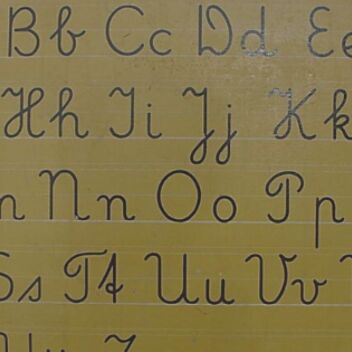 B b C c D d E e
H h I i J j K k
n N n O o P p
S s T t U u V v